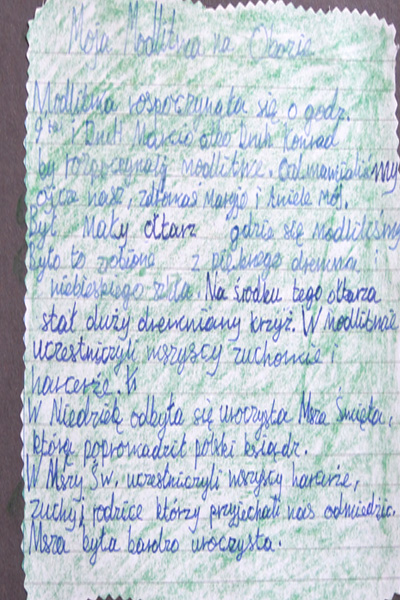 Moja Modlitwa na Obozie
Modlitwa rospoczynała się o godz.
9ta i Druh Marcio albo Druh Konrad
by rozpoczynali modlitwe. Odmawialiśmy
ojcze nasz, zdrowaś Maryjo i Aniele Mój.
Był Mały ołtarz gdzie się modliliśmy
Było to zobione z pięknego drewna i
niebieskiego szkła. Na środku tego ołtarza
stał duży drewniany krzyż. W Modlitwie
uczestniczyli wszyscy zuchowie i
harcerze.
W Niedzielę odbyła się uroczysta Msza Święta,
którą poprowadził polski ksiądz.
W Mszy Św. uczestniczyli wszyscy harcerze,
zuchy i rodzice którzy przyjechali nas odwiedzić.
Msza była bardzo uroczysta.